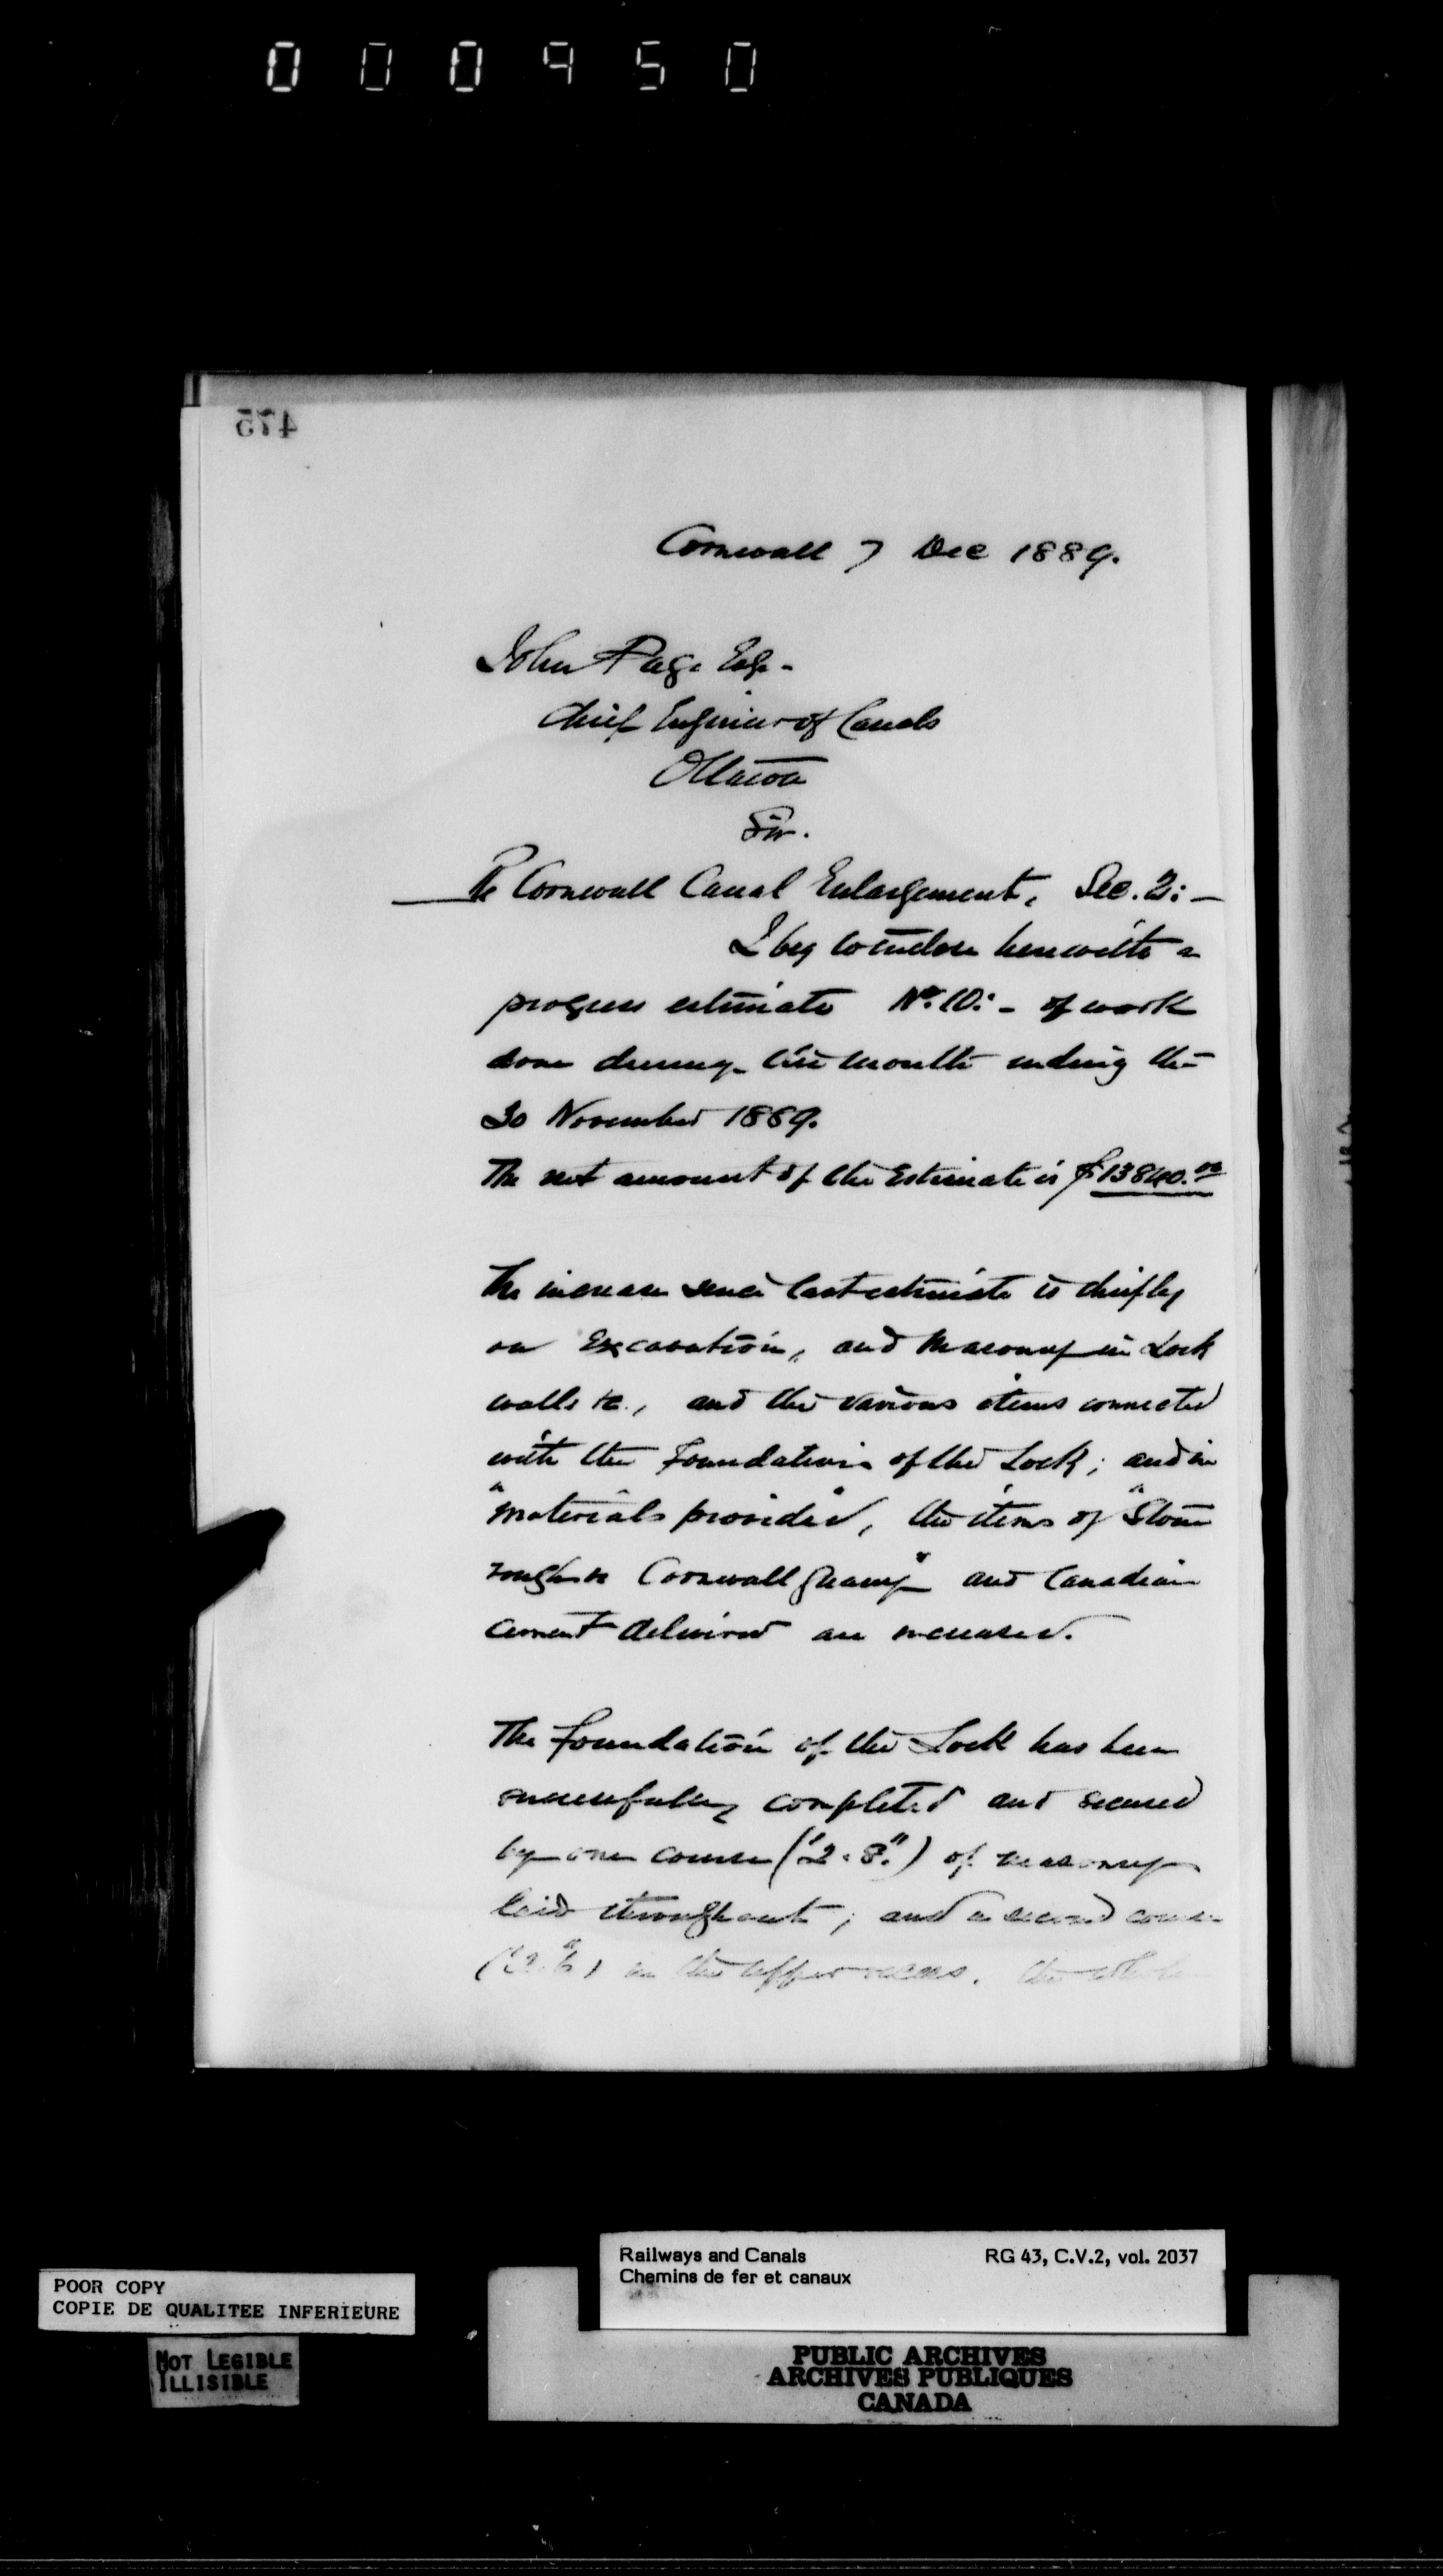 000950
475
Cornwall 7 Dec 1889.
John Page Esq-
Chief Engineer of Canals
Ottawa
Sir.
Re Cornwall Canal Enlargement, Sec. 2:-
I beg to enclose herewith a
progress estimate No. 10:- of work
done during the month ending the
30 November 1889.
The net amount of the Estimate is $13840.00
The increase since last estimate is chiefly
on Excavation, and Masonry in Lock
walls &c., and the various items connected
with the Foundation of the Lock; and in
"Materials provided", the items of "Stone
rough at Cornwall Quarry" and Canadian
Cement delivered are increased.
The foundation of the Lock has been
successfully completed and secured
by one course (2'.8".) of masonry
laid throughout; and a second course
in the upper recess. The whole
Railways and Canals
Chemins de fer et canaux
RG 43, C.V.2, vol. 2037
POOR COPY
COPIE DE QUALITEE INFERIEURE
NOT LEGIBLE
ILLISIBLE
PUBLIC ARCHIVES
ARCHIVES PUBLIQUES
CANADA